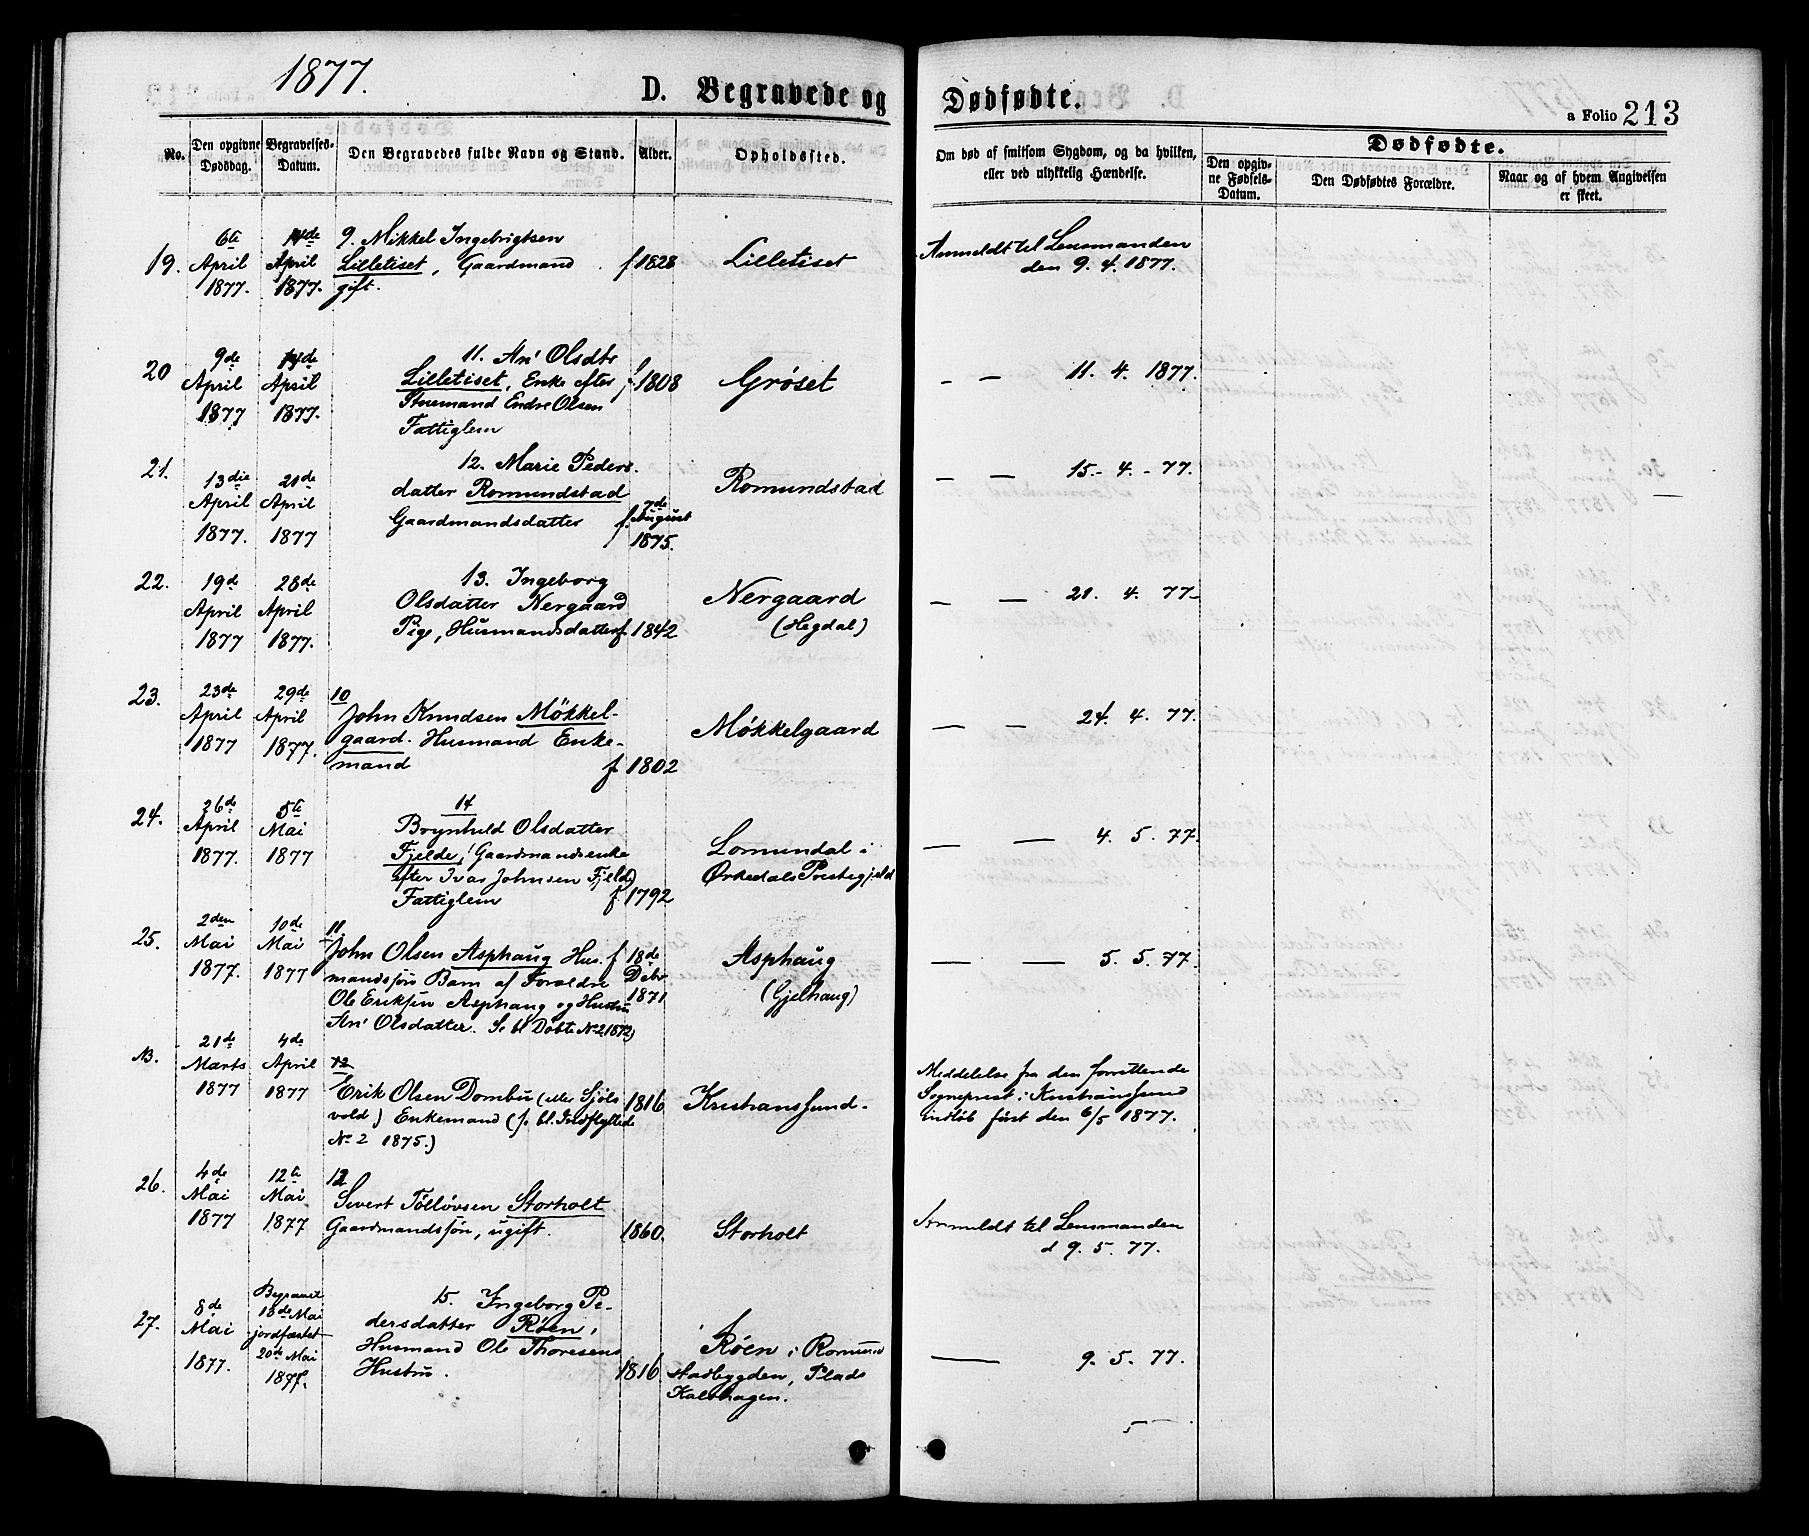 1877.
D. Begravede og Dødfødte.
a Folio 213
No.
Den opgivne Dødsdag.
Begravelses-Datum.
Den Begravedes fulde Navn og Stand.
Alder.
Opholdssted.
Om død af smitsom Sygdom, og da hvilken,
eller ved ulykkelig Hændelse.
Dødfødte.
Den opgiv-
ne Fødsels-
Datum.
Den Dødfødtes Forældre.
Naar og af hvem Angivelsen
er skeet.
19.
6te April 1877.
14de April 1877.
9. Mikkel Ingebrigtsen
Lilletiset, Gaardmand
gift.
f 1828
Lilletiset
Anmeldt til Lensmanden
den 9. 4. 1877.
20
9de April 1877
14de April 1877.
11. Ari' Olsdtr
Lilletiset, Enke efter
Endre Olsen
Fattiglem
f 1808
Grøset
— — 11. 4. 1877.
21.
13die April 1877.
21de April 1877
12. Marie Peders-
datter Romundstad
Gaardmandsdatter
f. 7de August 1875.
Romundstad
— — 15.- 4. - 77.
22.
19de April 1877
28de April 1877.
13. Ingeborg
Olsdatter Nergaard
Pige, Husmandsdatter
f. 1842
Nergaard
(Hegdal)
— — 21. 4. 77-
23.
23de April 1877
29de April 1877.
10
John Knudsen Møkkel-
gaard. Husmand Enke-
mand
f. 1802
Møkkelgaard
— — 24. 4. 77.
24.
26de April 1877.
5te Mai 1877
14
Brynhild Olsdatter
Fjelde, Gaardmandsenke
efter Ivar Johnsen Fjelde
Fattiglem
f. 1792
Lomundal i
Ørkedals Prestegjeld
— — 4. 5. 77.
25.
2den Mai 1877.
10de Mai 1877
11
John Olsen Asphaug Hus-
mandssøn Barn af Forældre
Ole Eriksen Asphaug og Hustru
Ari' Olsdatter. Se bl Døbte No 2 1872)
f 18de Debr 1871
Asphaug
(Gjelhaug)
— — 5. 5. 77.
NB.
21de Marts 1877
4de April 1877
12
Erik Olsen Dombu (eller Sjøls
vold,) Enkemand (s. bl. Indflyttede
No 2 1875.)
1816
Kristianssund.
Meddelelse fra den forrettende
Sogneprest i Kristianssund
indløb først den 6/5 1877.
26.
4de Mai 1877
12te Mai 1877
12
Sivert Tølløvsen Storholt
Gaardmandssøn, ugift.
1860.
Storholt
Anmeldt til Lensmanden
d 9. 5. 77.
27.
8de Mai 1877.
Begravet
18de Mai
jordfæstet
20de Mai
1877.
15. Ingeborg Pe-
dersdatter Røen,
Husmand Ole Thoresens
Hustru.
1816
Røen i Romund
stadbygden, Plads
Kalvhagen.
— 9. 5. 77.
5